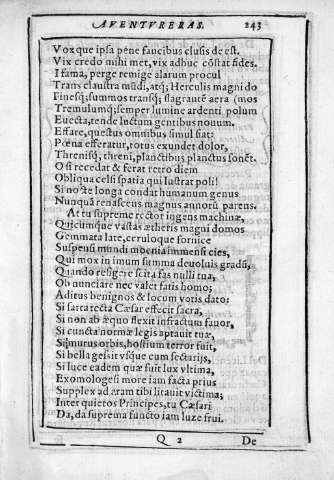 AVENTVRERAS. 243
Vox que ipsa pene faucibus clusis de est.
Vix credo mihi met, vix adhuc cõstat fides.
I fama, perge remige alarum procul
Trans claustra mũdi, atq; Herculis magni do
Finesq; summos transq; flagrantẽ aera (mos
Tremulumq; semper lumine ardenti polum
Euecta, tende luctum gentibus nouum.
Effare, questus omnibus simul fiat:
Pœna efferatur, totus exundet dolor,
Threnisq; threni, planctibus planctus sonẽt.
O si recedat & ferat retro diem
Obliqua celsi spatia qui lustrat poli!
Si nocte longa condat humanum genus
Nunquã renascens magnus annorũ parens.
At tu supreme rector ingens machinæ,
Quicumque vastas ætheris magni domos
Gemmata late, cęruloque fornice
Suspensi mundi moenia immensi cies,
Qui mox in imum summa deuoluis gradũ,
Quando refigere scita fas nulli tua,
Ob nunciare nec valet fatis homo;
Aditus benignos & locum votis dato:
Si sarta tecta Cæsar effecit sacra,
Si non ab æquo flexit infractum fauor,
Si cuncta normæ legis aptauit tuæ,
Si murus orbis, hostium terror fuit,
Si bella gessit vsque cum sectarijs,
Si luce eadem quæ fuit lux vltima,
Exomologesi more iam facta prius
Supplex ad aram tibi litauit victima;
Inter quietos Principes, tu Cæsari
Da, da suprema functo iam luze frui.
Q 2 De